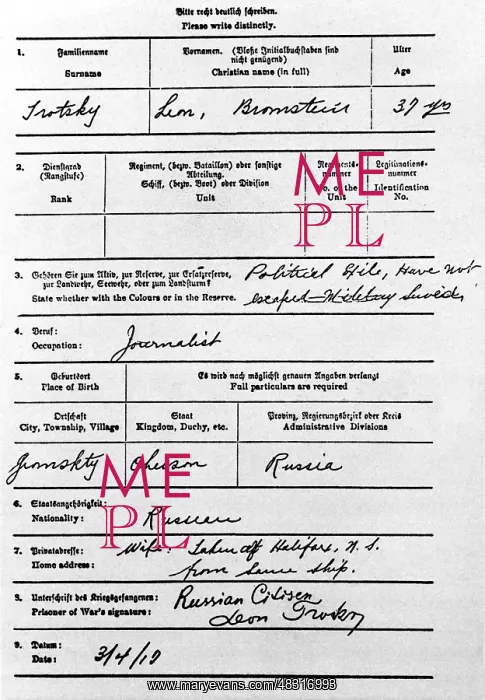 Bitte recht deutlich schreiben.
Please write distinctly.
1. Familienname
Surname
Vornamen. (Bloße Initialbuchstaben sind
nicht genügend)
Christian name (in full)
Alter
Age
Trotsky
Leon, Bromstein
37 yrs
2. Dienstgrad
(Rangstufe)
Rank
Regiment, (bezw. Bataillon) oder sonstige
Abteilung.
Schiff, (bezw. Boot) oder Division
Unit
Regiments-
nummer
No. of the
Unit
Legitimations-
nummer
Identification
No.
ME
PL
3. Gehören Sie zum Aktiv, zur Reserve, zur Ersatzreserve,
zur Landwehr, Seewehr, oder zum Landsturm?
State whether with the Colours or in the Reserve.
Political Exile, Have not
escaped Military Service
4. Beruf:
Occupation:
Journalist
5. Geburtsort
Place of Birth
Es wird nach möglichst genauen Angaben verlangt
Full particulars are required
Ortschaft
City, Township, Village
Staat
Kingdom, Duchy, etc.
Provinz, Regierungsbezirk oder Kreis
Administrative Divisions
Cherson
Russia
ME
PL
6. Staatsangehörigkeit:
Nationality:
Russian
7. Privatadresse:
Home address:
Wife. Taken off Halifax, N. S.
from same ship.
8. Unterschrift des Kriegsgefangenen:
Prisoner of War's signature:
Russian Citisen
Leon Trotzky
9. Datum:
Date:
3/4/19
www.maryevans.com/48316993